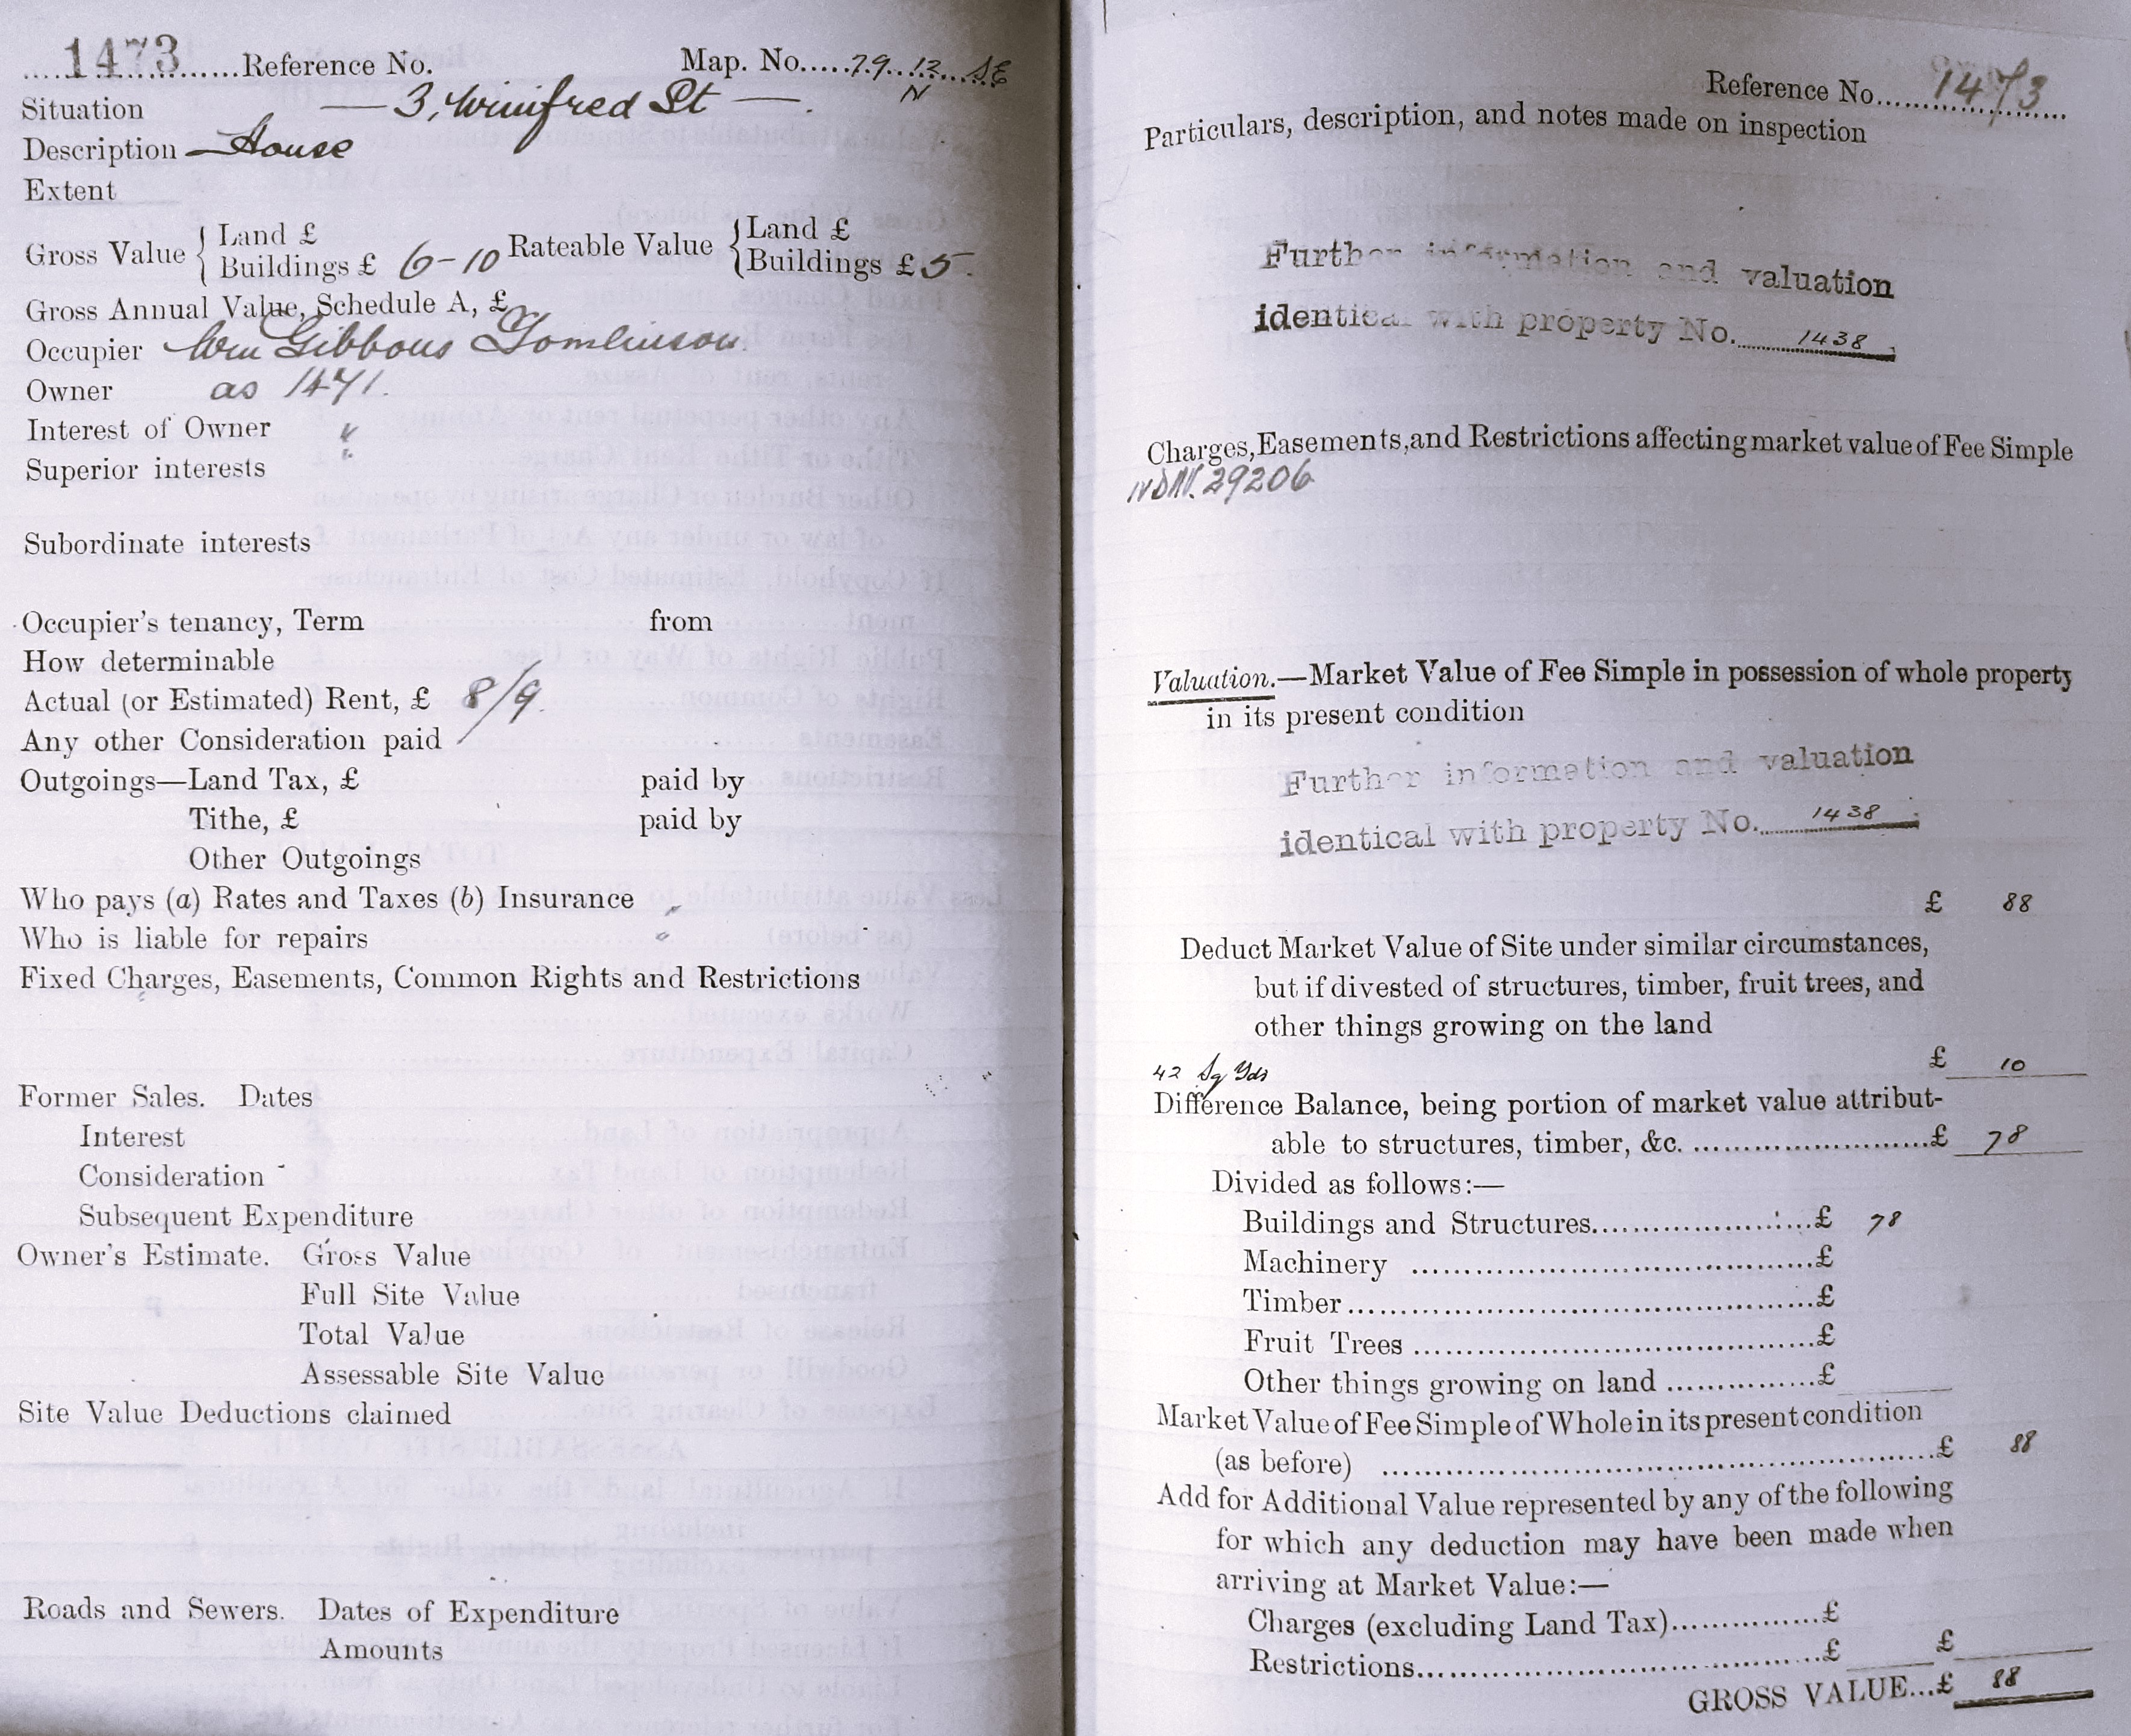 1473 Reference No. Map. No. 79. 12 SE
N
Situation — 3, Winifred St —.
Description — House
Extent
Gross Value { Land £ Rateable Value { Land £
Buildings £ 6-10 Buildings £ 5.
Gross Annual Value, Schedule A, £
Occupier Wm Gibbons Tomlinson.
Owner as 1471.
Interest of Owner "
Superior interests "
Subordinate interests
Occupier's tenancy, Term from
How determinable
Actual (or Estimated) Rent, £ 8/9.
Any other Consideration paid
Outgoings—Land Tax, £ paid by
Tithe, £ paid by
Other Outgoings
Who pays (a) Rates and Taxes (b) Insurance
Who is liable for repairs
Fixed Charges, Easements, Common Rights and Restrictions
Former Sales. Dates
Interest
Consideration
Subsequent Expenditure
Owner's Estimate. Gross Value
Full Site Value
Total Value
Assessable Site Value
Site Value Deductions claimed
Roads and Sewers. Dates of Expenditure
Amounts
Reference No. 1473
Particulars, description, and notes made on inspection
Further information and valuation
identical with property No. 1438.
Charges, Easements, and Restrictions affecting market value of Fee Simple
29206
Valuation.—Market Value of Fee Simple in possession of whole property
in its present condition
Further information and valuation
identical with property No. 1438.
£ 88
Deduct Market Value of Site under similar circumstances,
but if divested of structures, timber, fruit trees, and
other things growing on the land
42 Sq Yds £ 10
Difference Balance, being portion of market value attribut-
able to structures, timber, &c. £ 78
Divided as follows:—
Buildings and Structures £ 78
Machinery £
Timber £
Fruit Trees £
Other things growing on land £
Market Value of Fee Simple of Whole in its present condition
(as before) £ 88
Add for Additional Value represented by any of the following
for which any deduction may have been made when
arriving at Market Value:—
Charges (excluding Land Tax) £
Restrictions £ £
GROSS VALUE...£ 88